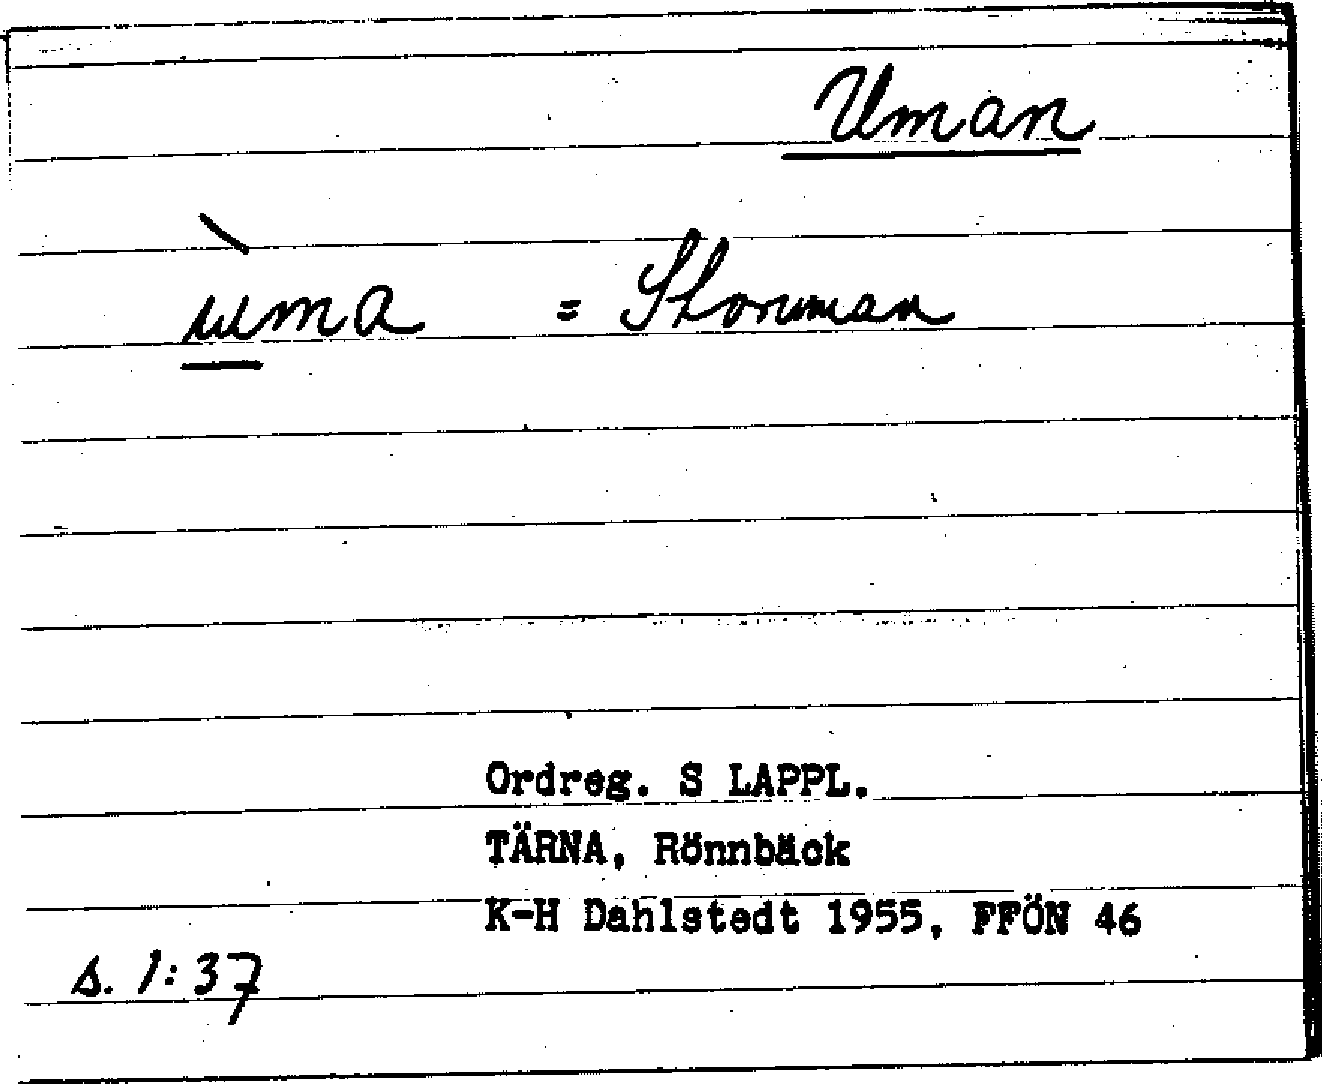 Uman
ùma = Storuman
Ordreg. S LAPPL.
TÄRNA, Rönnbäck
K-H Dahlstedt 1955, FFÖN 46
s. 1:37